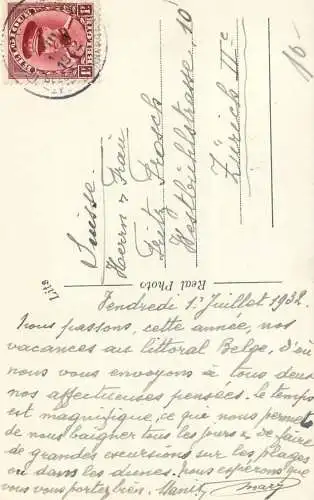 Suisse.
Herrn & Frau
Fritz Frosch
Westbühlstrasse 10
Zürich IIe
16-
Lits
Real Photo
Vendredi 1r Juillet 1932.
Nous passons, cette année, nos
vacances au littoral Belge, d'où
nous vous envoyons à tous deux
nos affectueuses pensées. Le temps
est magnifique, ce que nous permet
de nous baigner tous les jours & de faire
de grandes excursions sur les plages
ou dans les dunes. Nous espérons que
vous vous portez bien.
Mary